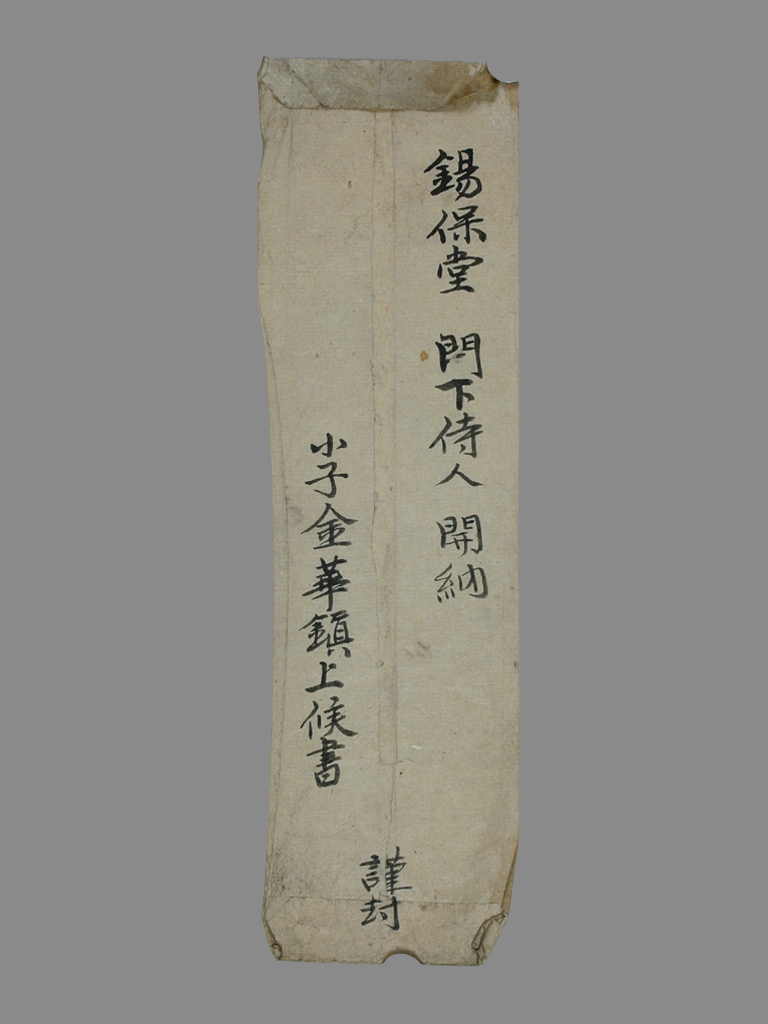 錫保堂 門下侍人 開納
小子金華鎭上候書
謹封